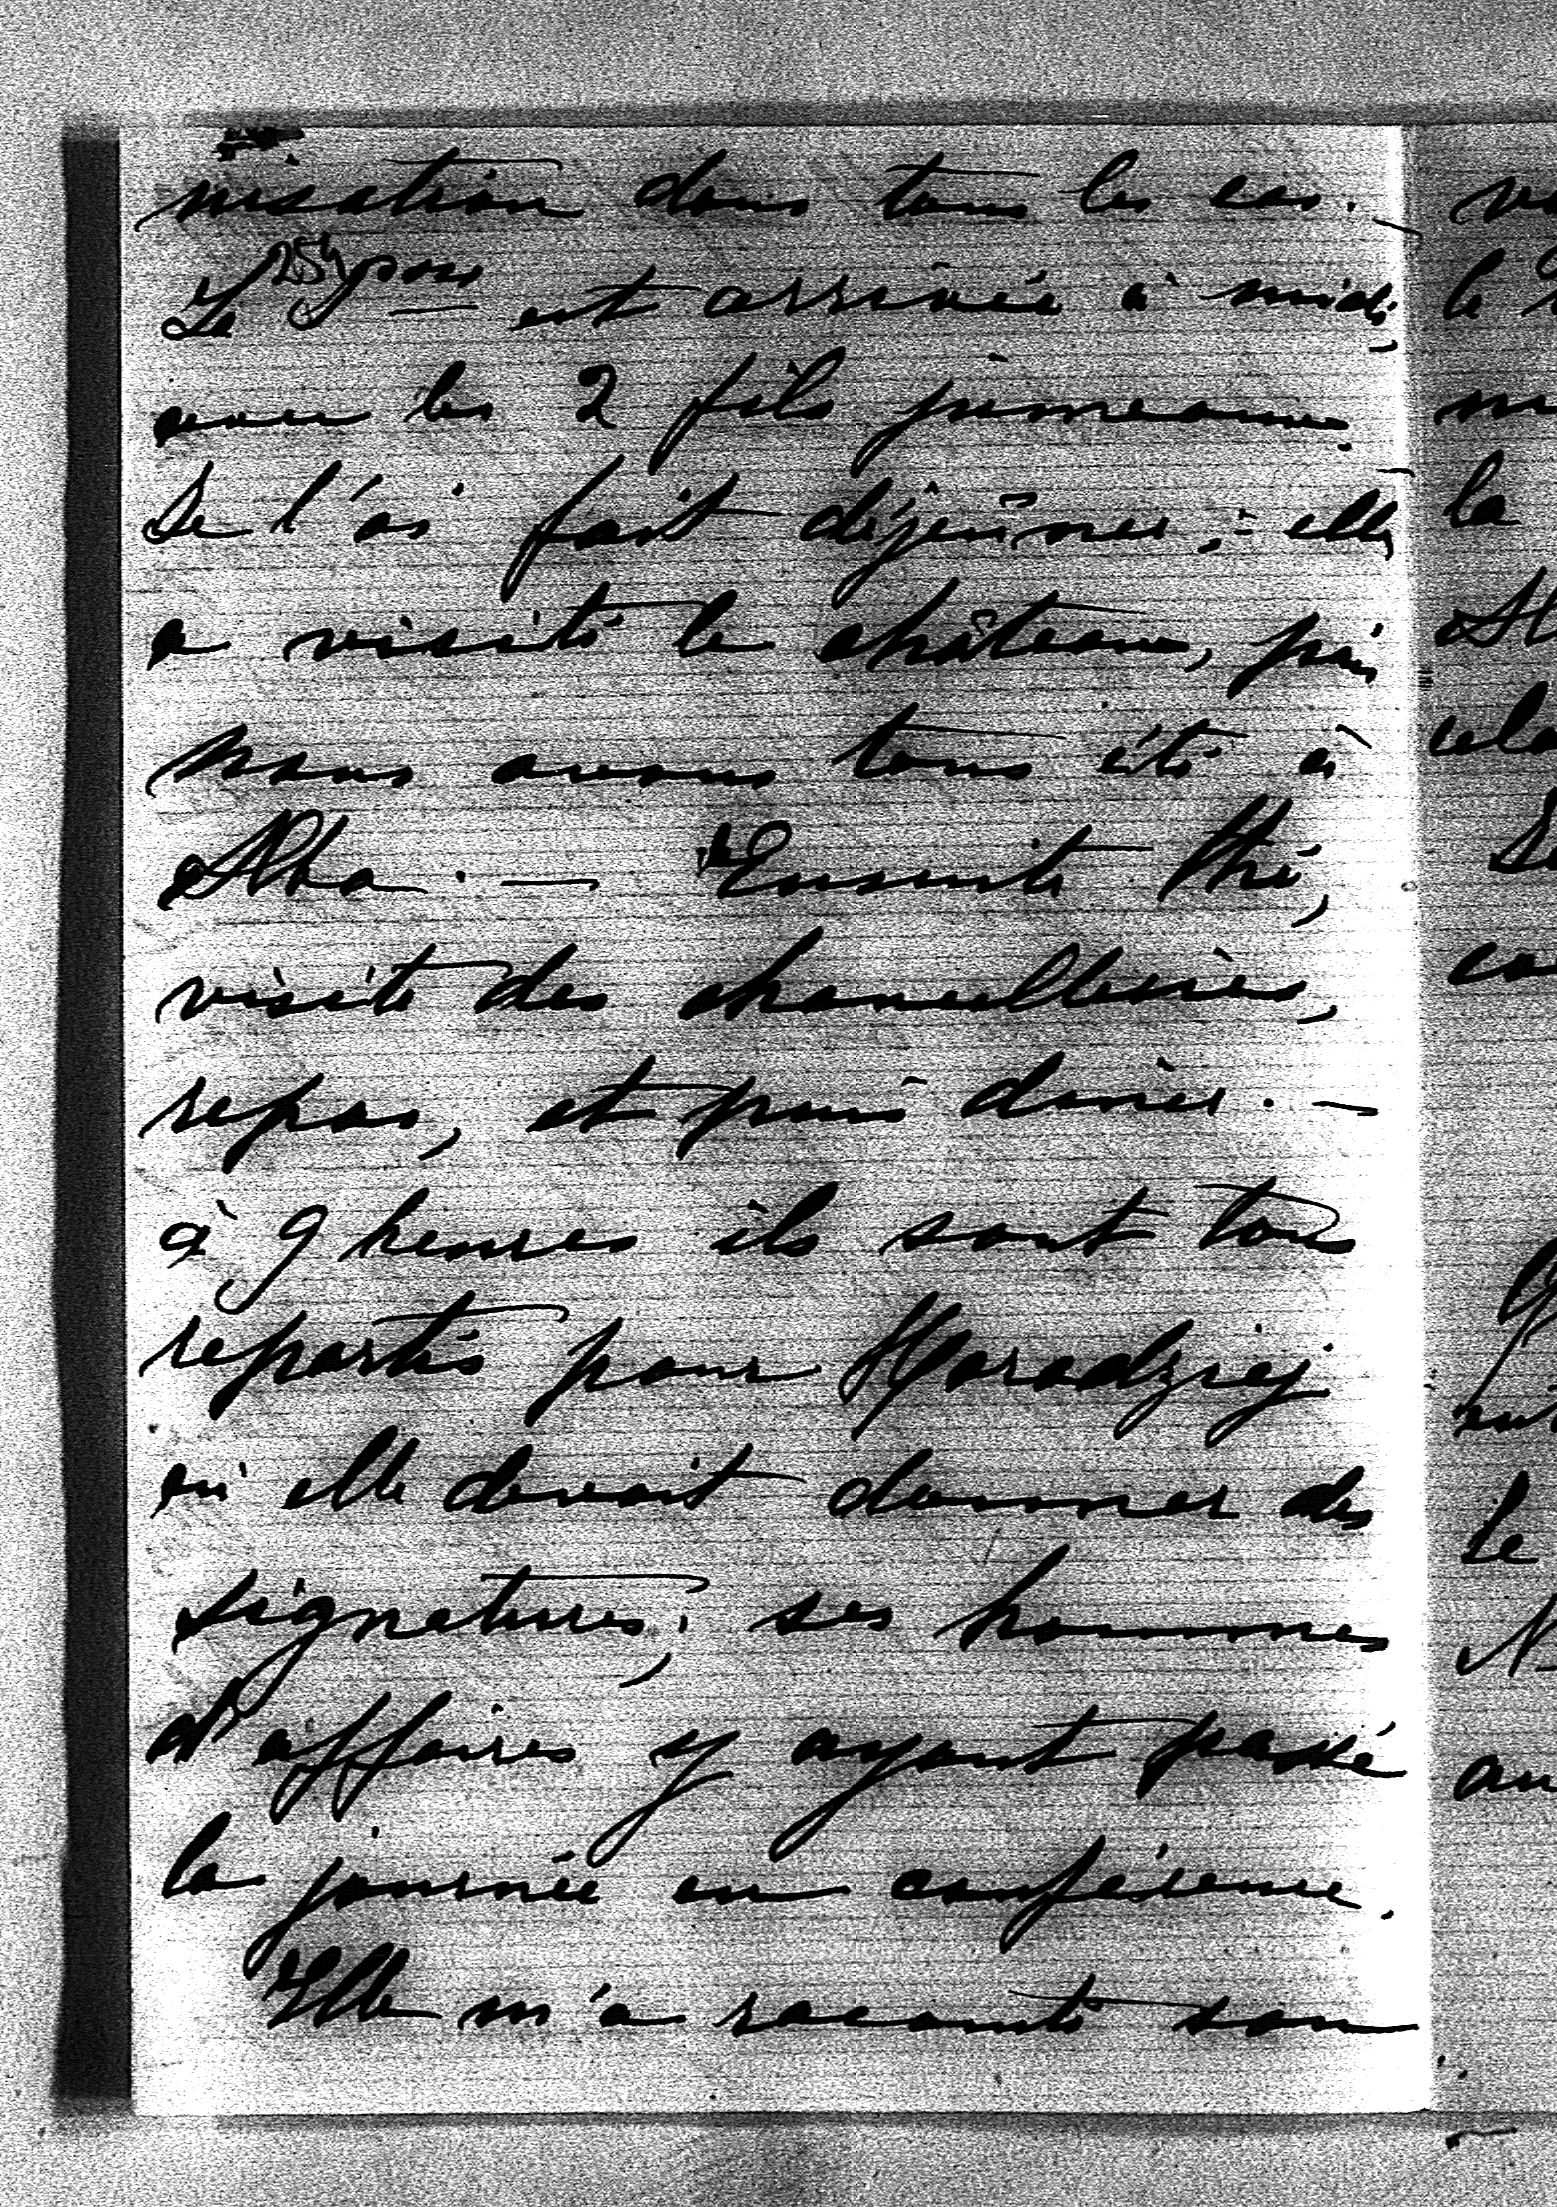 nisation dans tous les cas. —
Le 25 est arrivée à midi
avec les 2 fils jumeaux.
Je l'ai fait déjeûner : elle
a visité le château, puis
nous avons tous été à
Alba. — Ensuite thé,
visite des chancelleries,
repos, et puis dîner. —
à 9 heures ils sont tous
repartis pour Horodziej
où elle devait donner des
signatures, ses hommes
d'affaires y ayant passé
la journée en conférence.
Elle m'a raconté son